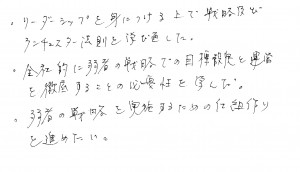 ・リーダーシップを身につける上で戦略及び
ランチェスター法則を学び直した。
・全社的に弱者の戦略での目標設定と運営
を徹底することの必要性を学んだ。
・弱者の戦略を実施するための仕組作り
を進めたい。